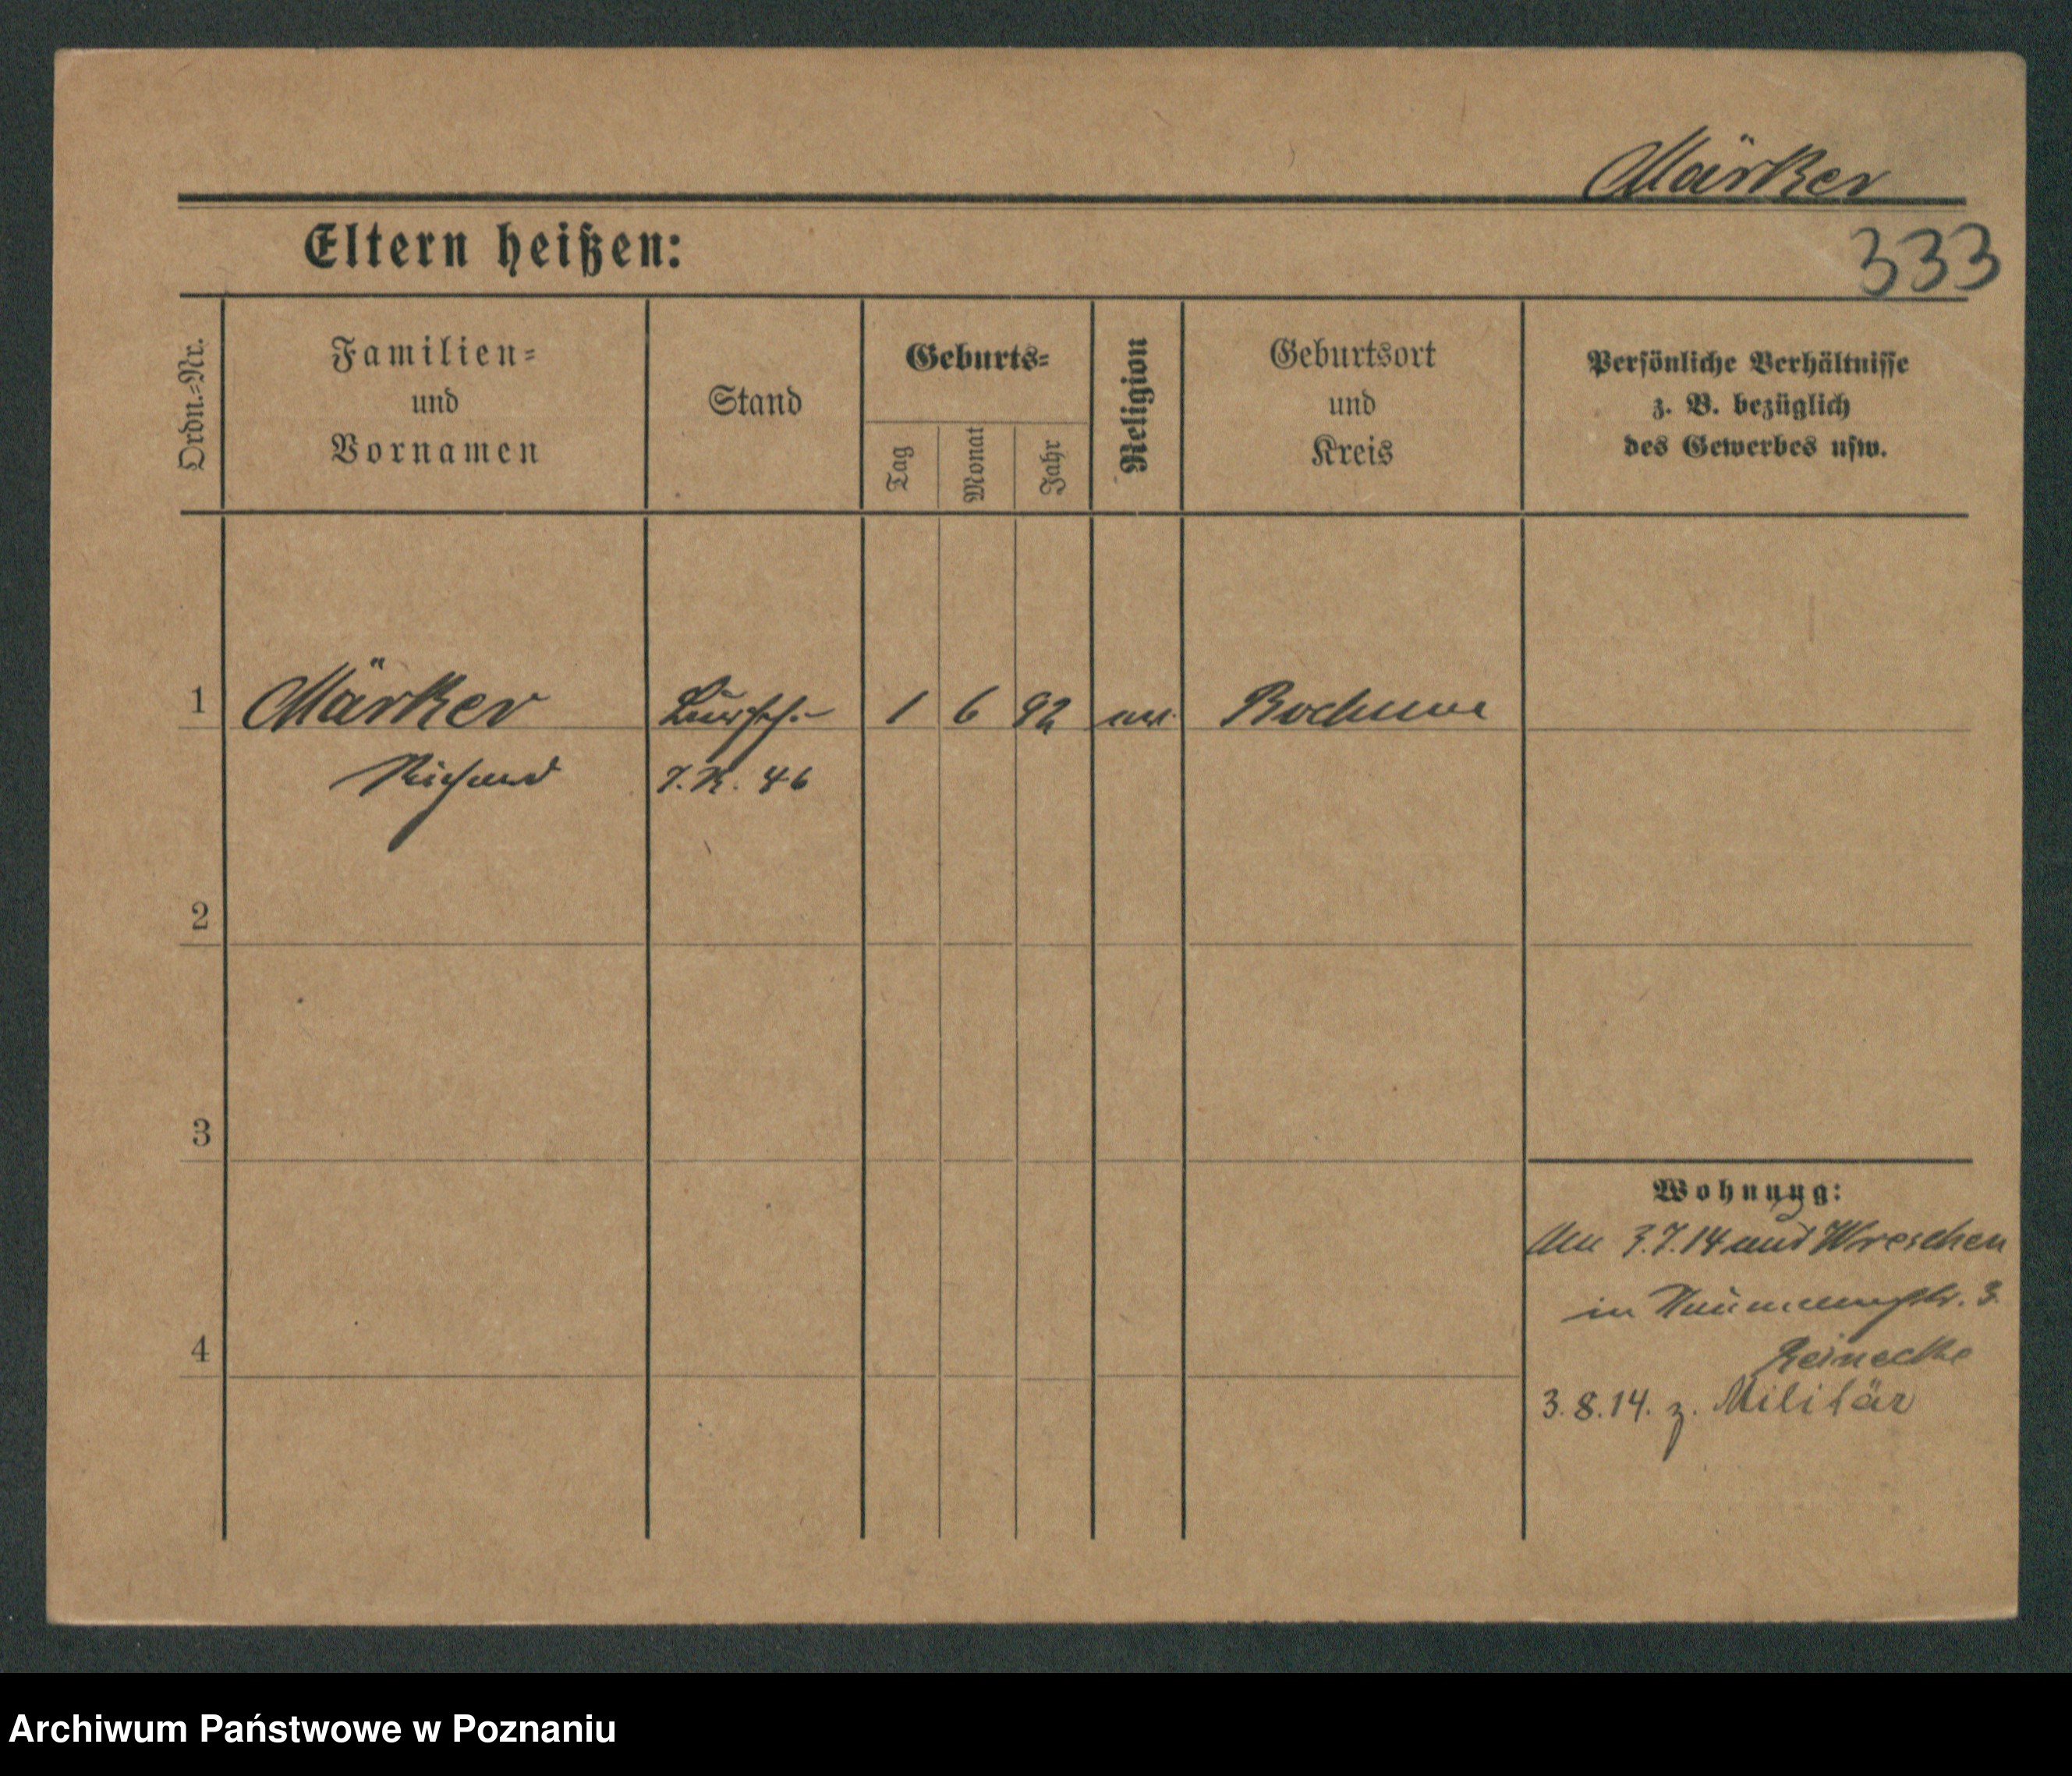 Märker
Eltern heißen:
333
Ordn.=Nr.
Familien=
und
Vornamen
Stand
Geburts=
Tag
Monat
Jahr
Religion
Geburtsort
und
Kreis
Persönliche Verhältnisse
z. B. bezüglich
des Gewerbes usw.
1 Märker 1 6 92 Bochum
Richard J.R. 46
2
3
4
Wohnung:
3.7.14 aus Wreschen
in Naumannstr. 3
Reinecke
3.8.14. z. Militär
Archiwum Państwowe w Poznaniu